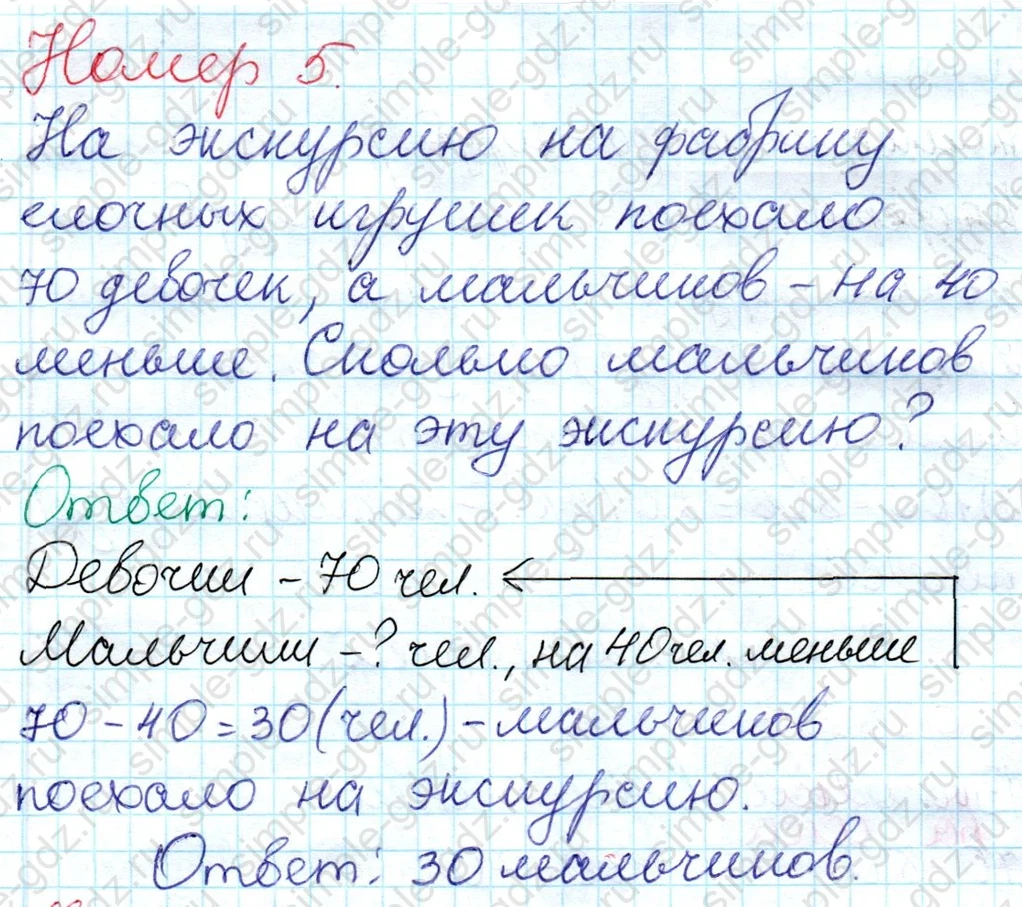 Номер 5.
На экскурсию на фабрику
елочных игрушек поехало
70 девочек, а мальчиков - на 40
меньше. Сколько мальчиков
поехало на эту экскурсию?
Ответ:
Девочки - 70 чел.
Мальчики - ? чел., на 40 чел. меньше
70 - 40 = 30 (чел.) - мальчиков
поехало на экскурсию.
Ответ: 30 мальчиков.
simple-gdz.ru